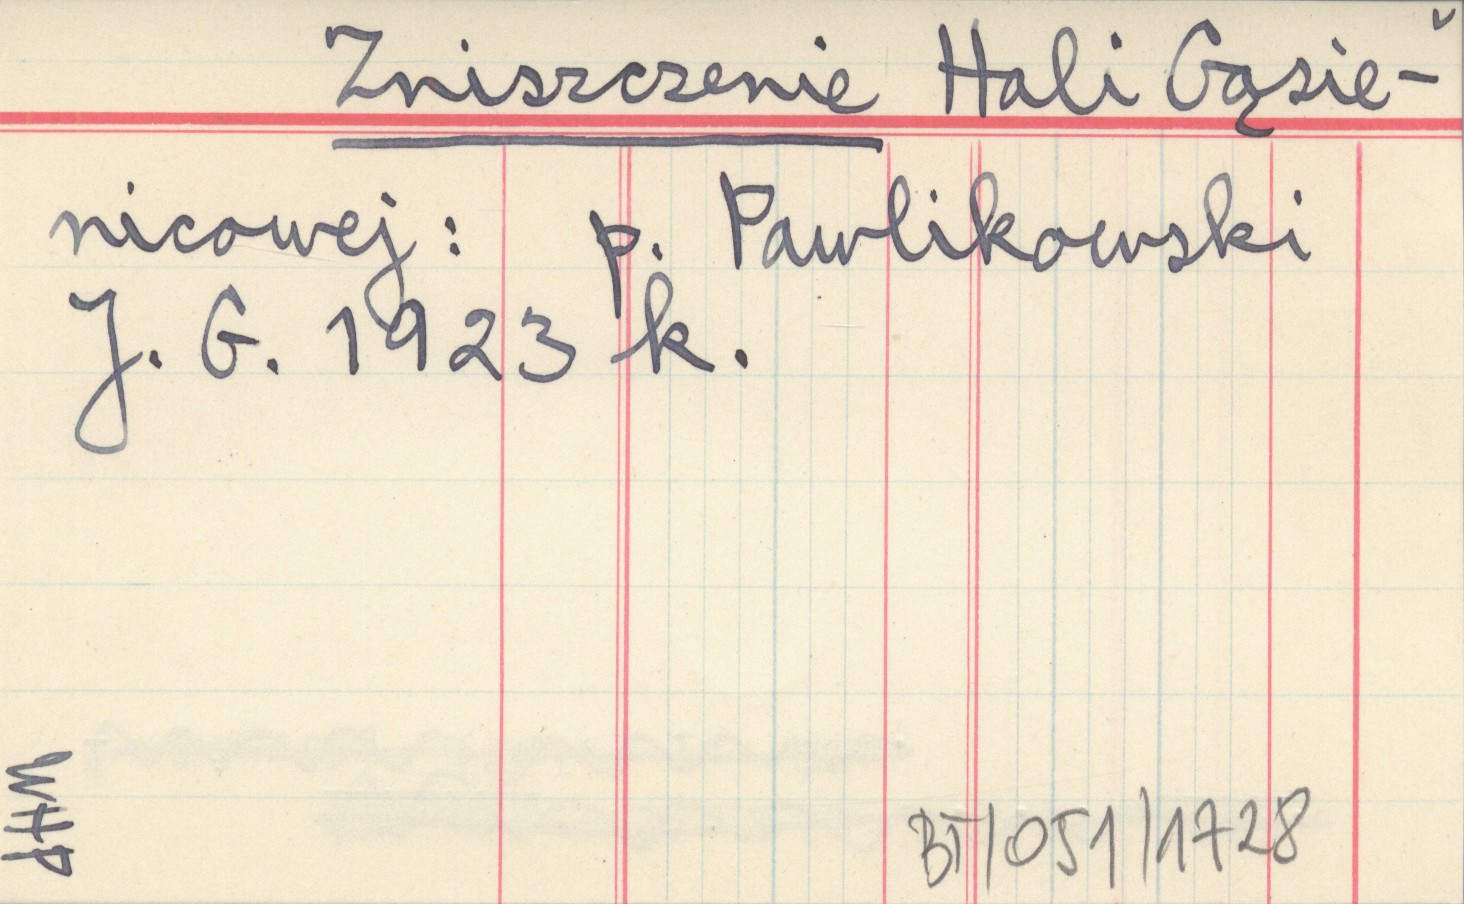 Zniszczenie Hali Gąsie-
nicowej: p. Pawlikowski
J. G. 1923 k.
WHP
BT/051/1728